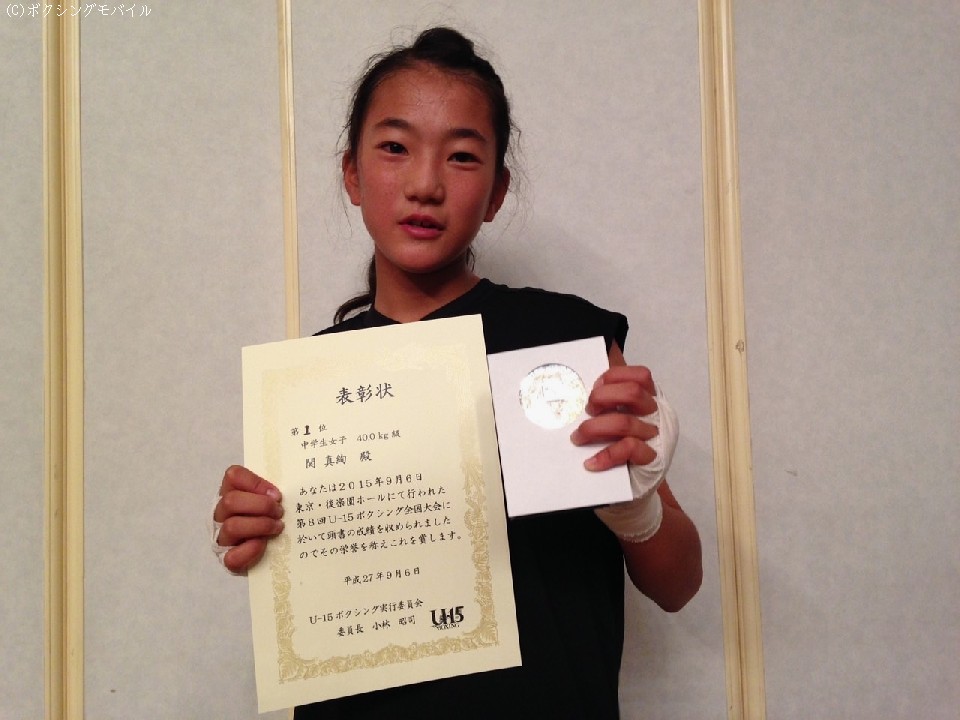 (C)ボクシングモバイル
表彰状
第1位
中学生女子 40.0kg級
関 真絢 殿
あなたは2015年9月6日
東京・後楽園ホールにて行われた
第8回U-15ボクシング全国大会に
於いて頭書の成績を収められました
のでその栄誉を称えこれを賞します。
平成27年9月6日
U-15ボクシング実行委員会
委員長 小林 昭司
U-15
BOXING